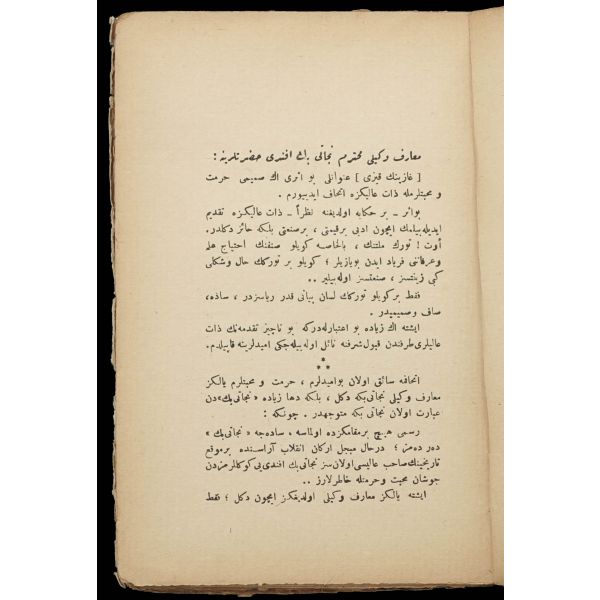 معارف وکیلی محترم نجاتی بك افندی حضرتلرینه :
[ غازینك قیزی ] عنوانلی بو اثری اك صمیمی حرمت
و محبتلرمله ذات عالیکزه اتحاف ایدییورم .
بواثر ــ بر حکایه اولدیغنه نظراً ــ ذات عالیکزه تقدیم
ایدیله بیلمك ایچون ادبی برقیمتی ، برصنعتی بلکه حائز دکلدر.
اوت ! تورك ملتنك ، بالخاصه کویلو صنفنك احتیاج علم
وعرفاننی فریاد ایدن بویازیلر ؛ کویلو بر تورکك حال وشکلی
کبی زینتسز ، صنعتسز اوله بیلیر ..
فقط بر کویلو تورکك لسان بیانی قدر ریاسزدر ، ساده،
صاف وصمیمیدر .
ایشته اك زیاده بو اعتبارله درکه بو ناچیز تقدمه نك ذات
عالیلری طرفندن قبول شرفنه نائل اوله بیله جکی امیدلرینه قاپیلدم.
***
اتحافه سائق اولان بوامیدلرم ، حرمت و محبتلرم یالکز
معارف وکیلی نجاتی بکه دکل ، بلکه دها زیاده «نجاتی بك» دن
عبارت اولان نجاتی بکه متوجهدر . چونکه :
رسمی هیچ برمقامکزده اولماسه ، ساده جه «نجاتی بك »
دەر دەمز ؛ درحال مبجل ارکان انقلاب آراسنده برموقع
تاریخینك صاحب عالیسی اولان سز نجاتی بك افندی یی کوکللرمزدن
جوشان محبت وحرمتله خاطرلارز ..
ایشته یالکز معارف وکیلی اولدیغکز ایچون دکل ؛ فقط